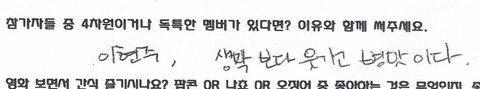 참가자들 중 4차원이거나 독특한 멤버가 있다면? 이유와 함께 써주세요.
이현주, 생각보다 웃기고 병맛이다.
영화 보면서 간식 즐기시나요? 팝콘 OR 나쵸 OR 오징어 중 좋아하는 것은 무엇인지,